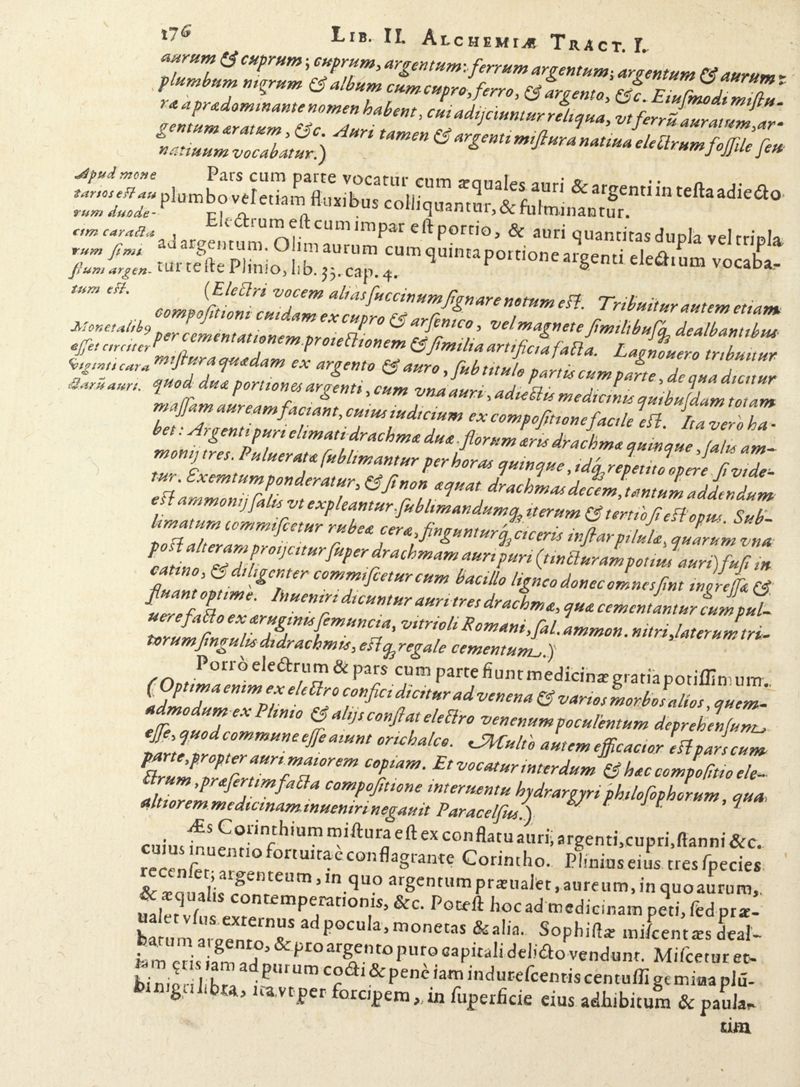 176 LIB. II. ALCHEMIÆ TRACT. I.
aurum & cuprum; cuprum, argentum: ferrum argentum; argentum & aurum:
plumbum nigrum & album cum cupro, ferro, & argento, &c. Eiuſmodi miſtu-
ræ a prædominante nomen habent, cui adijciuntur reliqua, vt ferrū auratum, ar-
gentum æratum, &c. Auri tamen & argenti miſtura natiua electrum foſſile ſeu
natiuum vocabatur.)
Pars cum parte vocatur cum æquales auri & argenti in teſta adiecto
plumbo vel etiam fluxibus colliquantur, & fulminantur.
Electrum eſt cum impar eſt portio, & auri quantitas dupla vel tripla
ad argentum. Olim aurum cum quinta portione argenti electrum vocaba-
tur teſte Plinio, lib. 33. cap. 4.
Apud mone
tarios eſt au
rum duode-
cim caracta
rum ſimi
ſium argen-
tum eſt.
(Electri vocem alias ſuccinum ſignare notum eſt. Tribuitur autem etiam
compoſitioni cuidam ex cupro & arſenico, vel magnete ſimilibuſq́ dealbantibus
per cementationem, proiectionem & ſimilia artificia facta. Lagnouero tribuitur
miſtura quædam ex argento & auro, ſub titulo partis cum parte, de qua dicitur
quod duæ portiones argenti, cum vna auri, adiectis medicinis quibuſdam totam
maſſam auream faciant, cuius iudicium ex compoſitione facile eſt. Ita vero ha-
bet: Argenti puri elimati drachmæ duæ, florum æris drachmæ quinque, ſalis am-
monij tres. Puluerata ſublimantur per horas quinque, idq́ repetito opere ſi vide-
tur. Exemtum ponderatur, & ſi non æquat drachmas decem, tantum addendum
eſt ammonij ſalis vt expleantur, ſublimandumq́ iterum & tertio ſi eſt opus. Sub-
limatum commiſcetur rubeæ ceræ, finguntur q́ ciceris inſtar pilulæ, quarum vna
poſt alteram proijcitur ſuper drachmam auri puri (tincturam potius auri) fuſi in
catino, & diligenter commiſcetur cum bacillo ligneo donec omnes ſint ingreſſæ &
fluant optime. Inueniri dicuntur auri tres drachmæ, quæ cementantur cum pul-
uere facto ex æruginis ſemuncia, vitrioli Romani, ſal. ammon. nitri, laterum tri-
torum ſingulis didrachmis, eſtq́ regale cementum.)
Monetalibꝰ
eſſet circiter
viginti cara
ctarū auri.
Porrò electrum & pars cum parte fiunt medicinæ gratia potiſſimum.
(Optima enim ex electro confici dicitur ad venena & varios morbos alios, quem-
admodum ex Plinio & alijs conſtat electro venenum poculentum deprehenſum
eſſe, quod commune eſſe aiunt orichalco. Multò autem efficacior eſt pars cum
parte, propter auri maiorem copiam. Et vocatur interdum & hæc compoſitio ele-
ctrum, præſertim facta compoſitione interuentu hydrargyri philoſophorum, qua
altiorem medicinam inueniri negauit Paracelſus.)
Æs Corinthium miſtura eſt ex conflatu auri, argenti, cupri, ſtanni &c.
cuius inuentio fortuitæ è conflagrante Corintho. Plinius eius tres ſpecies
recenſet; argenteum, in quo argentum præualet, aureum, in quo aurum,
& æqualis contemperationis, &c. Poteſt hoc ad medicinam peti, ſed præ-
ualet vſus externus ad pocula, monetas & alia. Sophiſtæ miſcent æs deal-
batum argento, & pro argento puro capitali delicto vendunt. Miſcetur et-
iam æris iam ad purum cocti & penè iam indureſcentis centuſſi geminа plū-
bi nigri libra, ita vt per forcipem, in ſuperficie eius adhibitum & paula-
tim